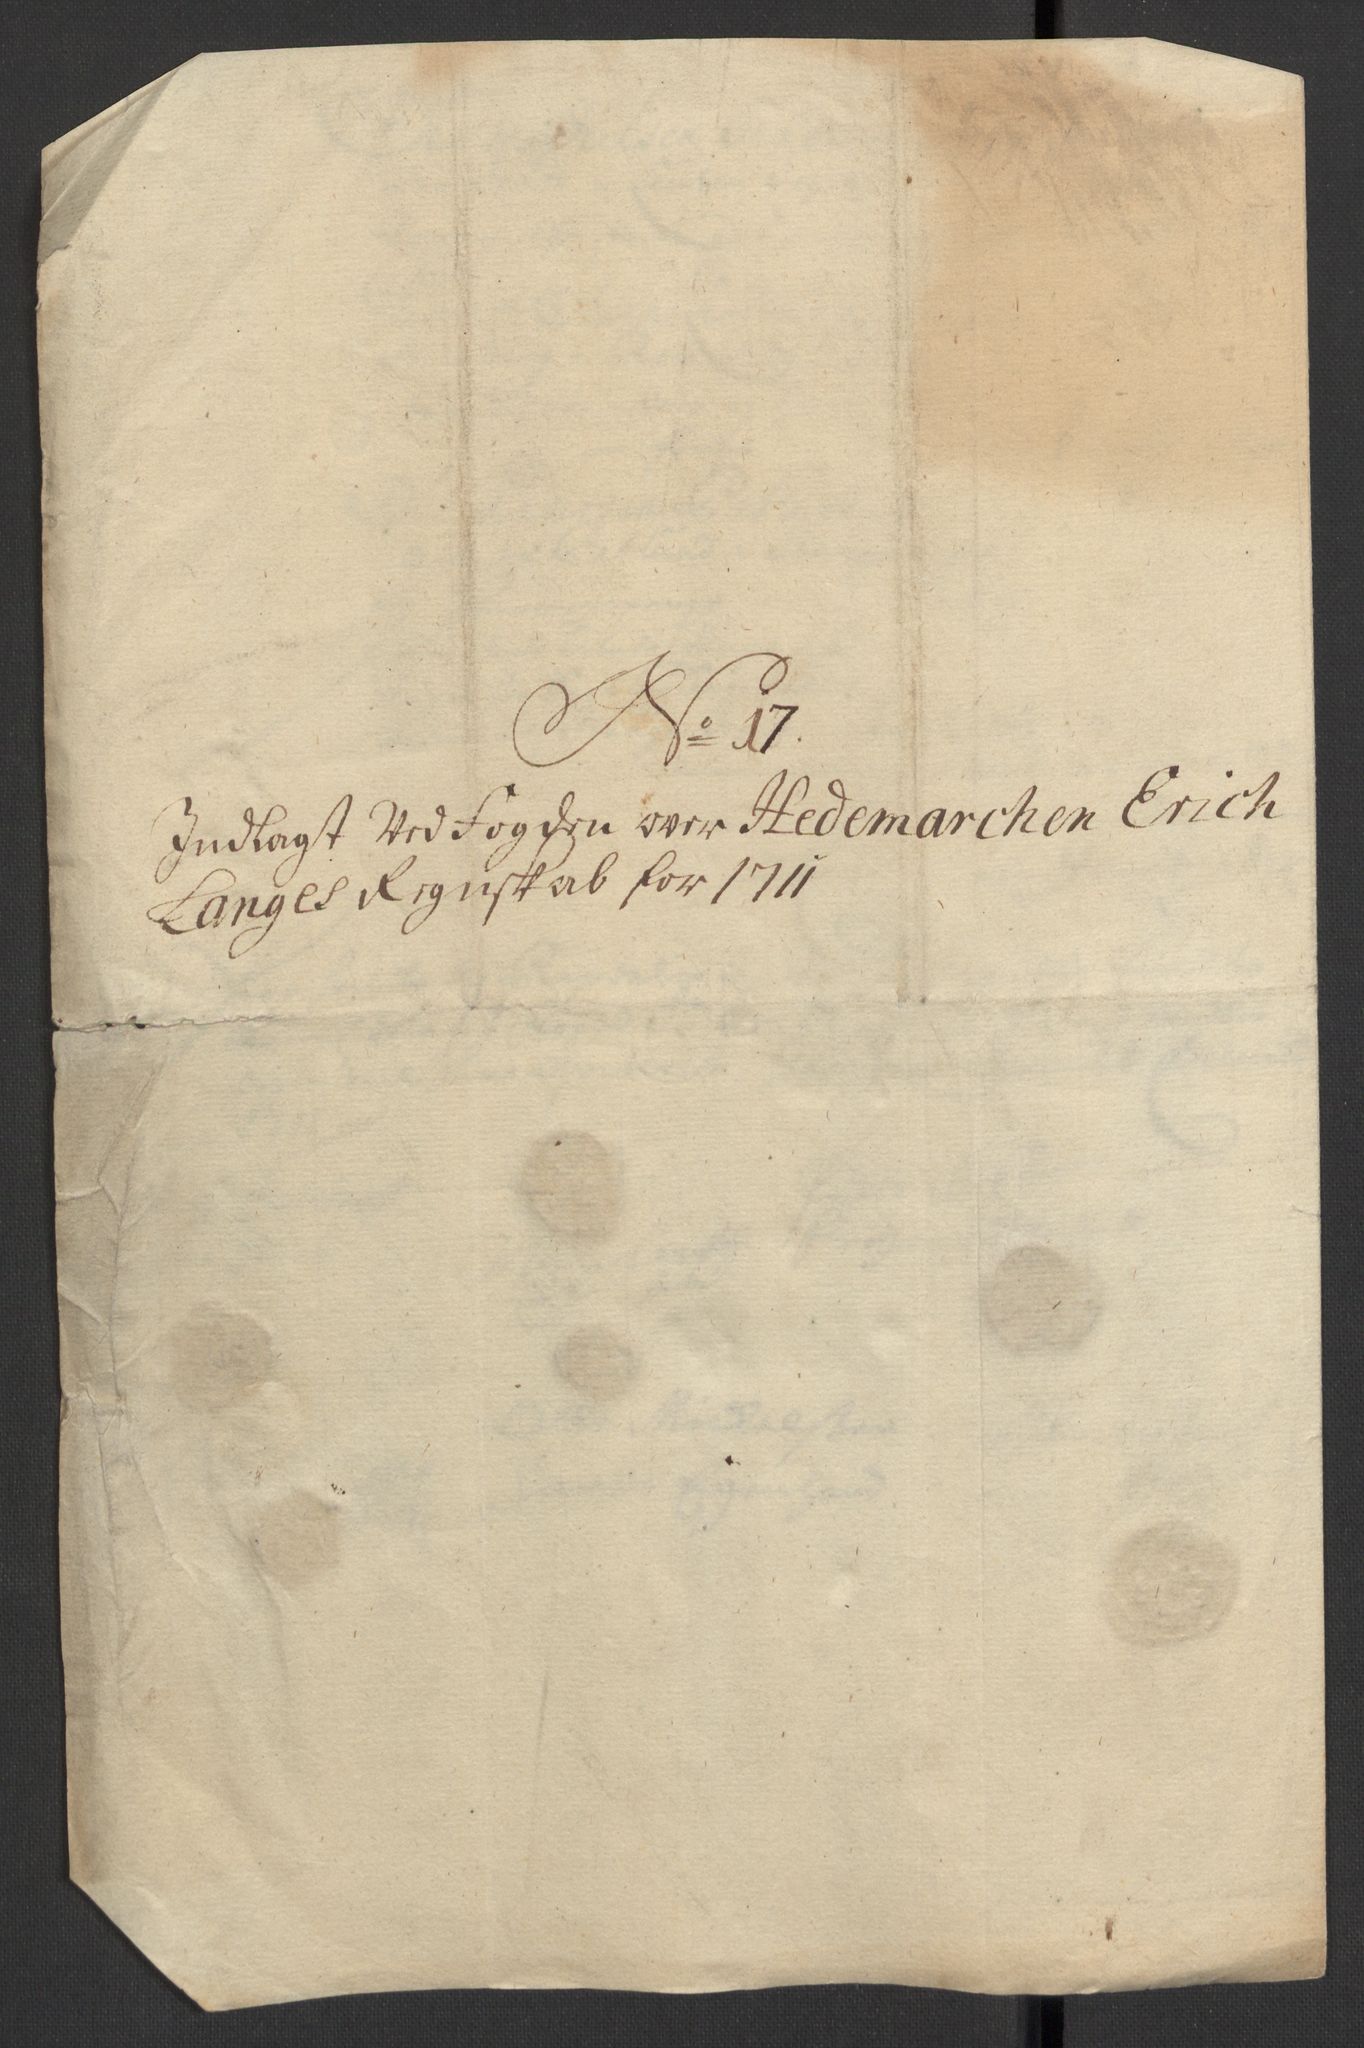 No 17.
Indlagt Ved Fogden over Hedemarchen Erich
Langes Regnskab for 1711